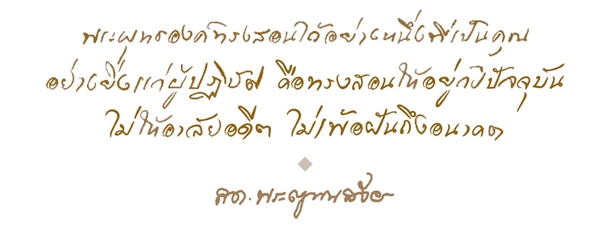 พระพุทธองค์ทรงสอนไว้อย่างหนึ่งที่เป็นคุณ
อย่างยิ่งแก่ผู้ปฏิบัติ คือทรงสอนให้อยู่กับปัจจุบัน
ไม่ให้อาลัยอดีต ไม่เพ้อฝันถึงอนาคต
สต. พระญาณสังวร